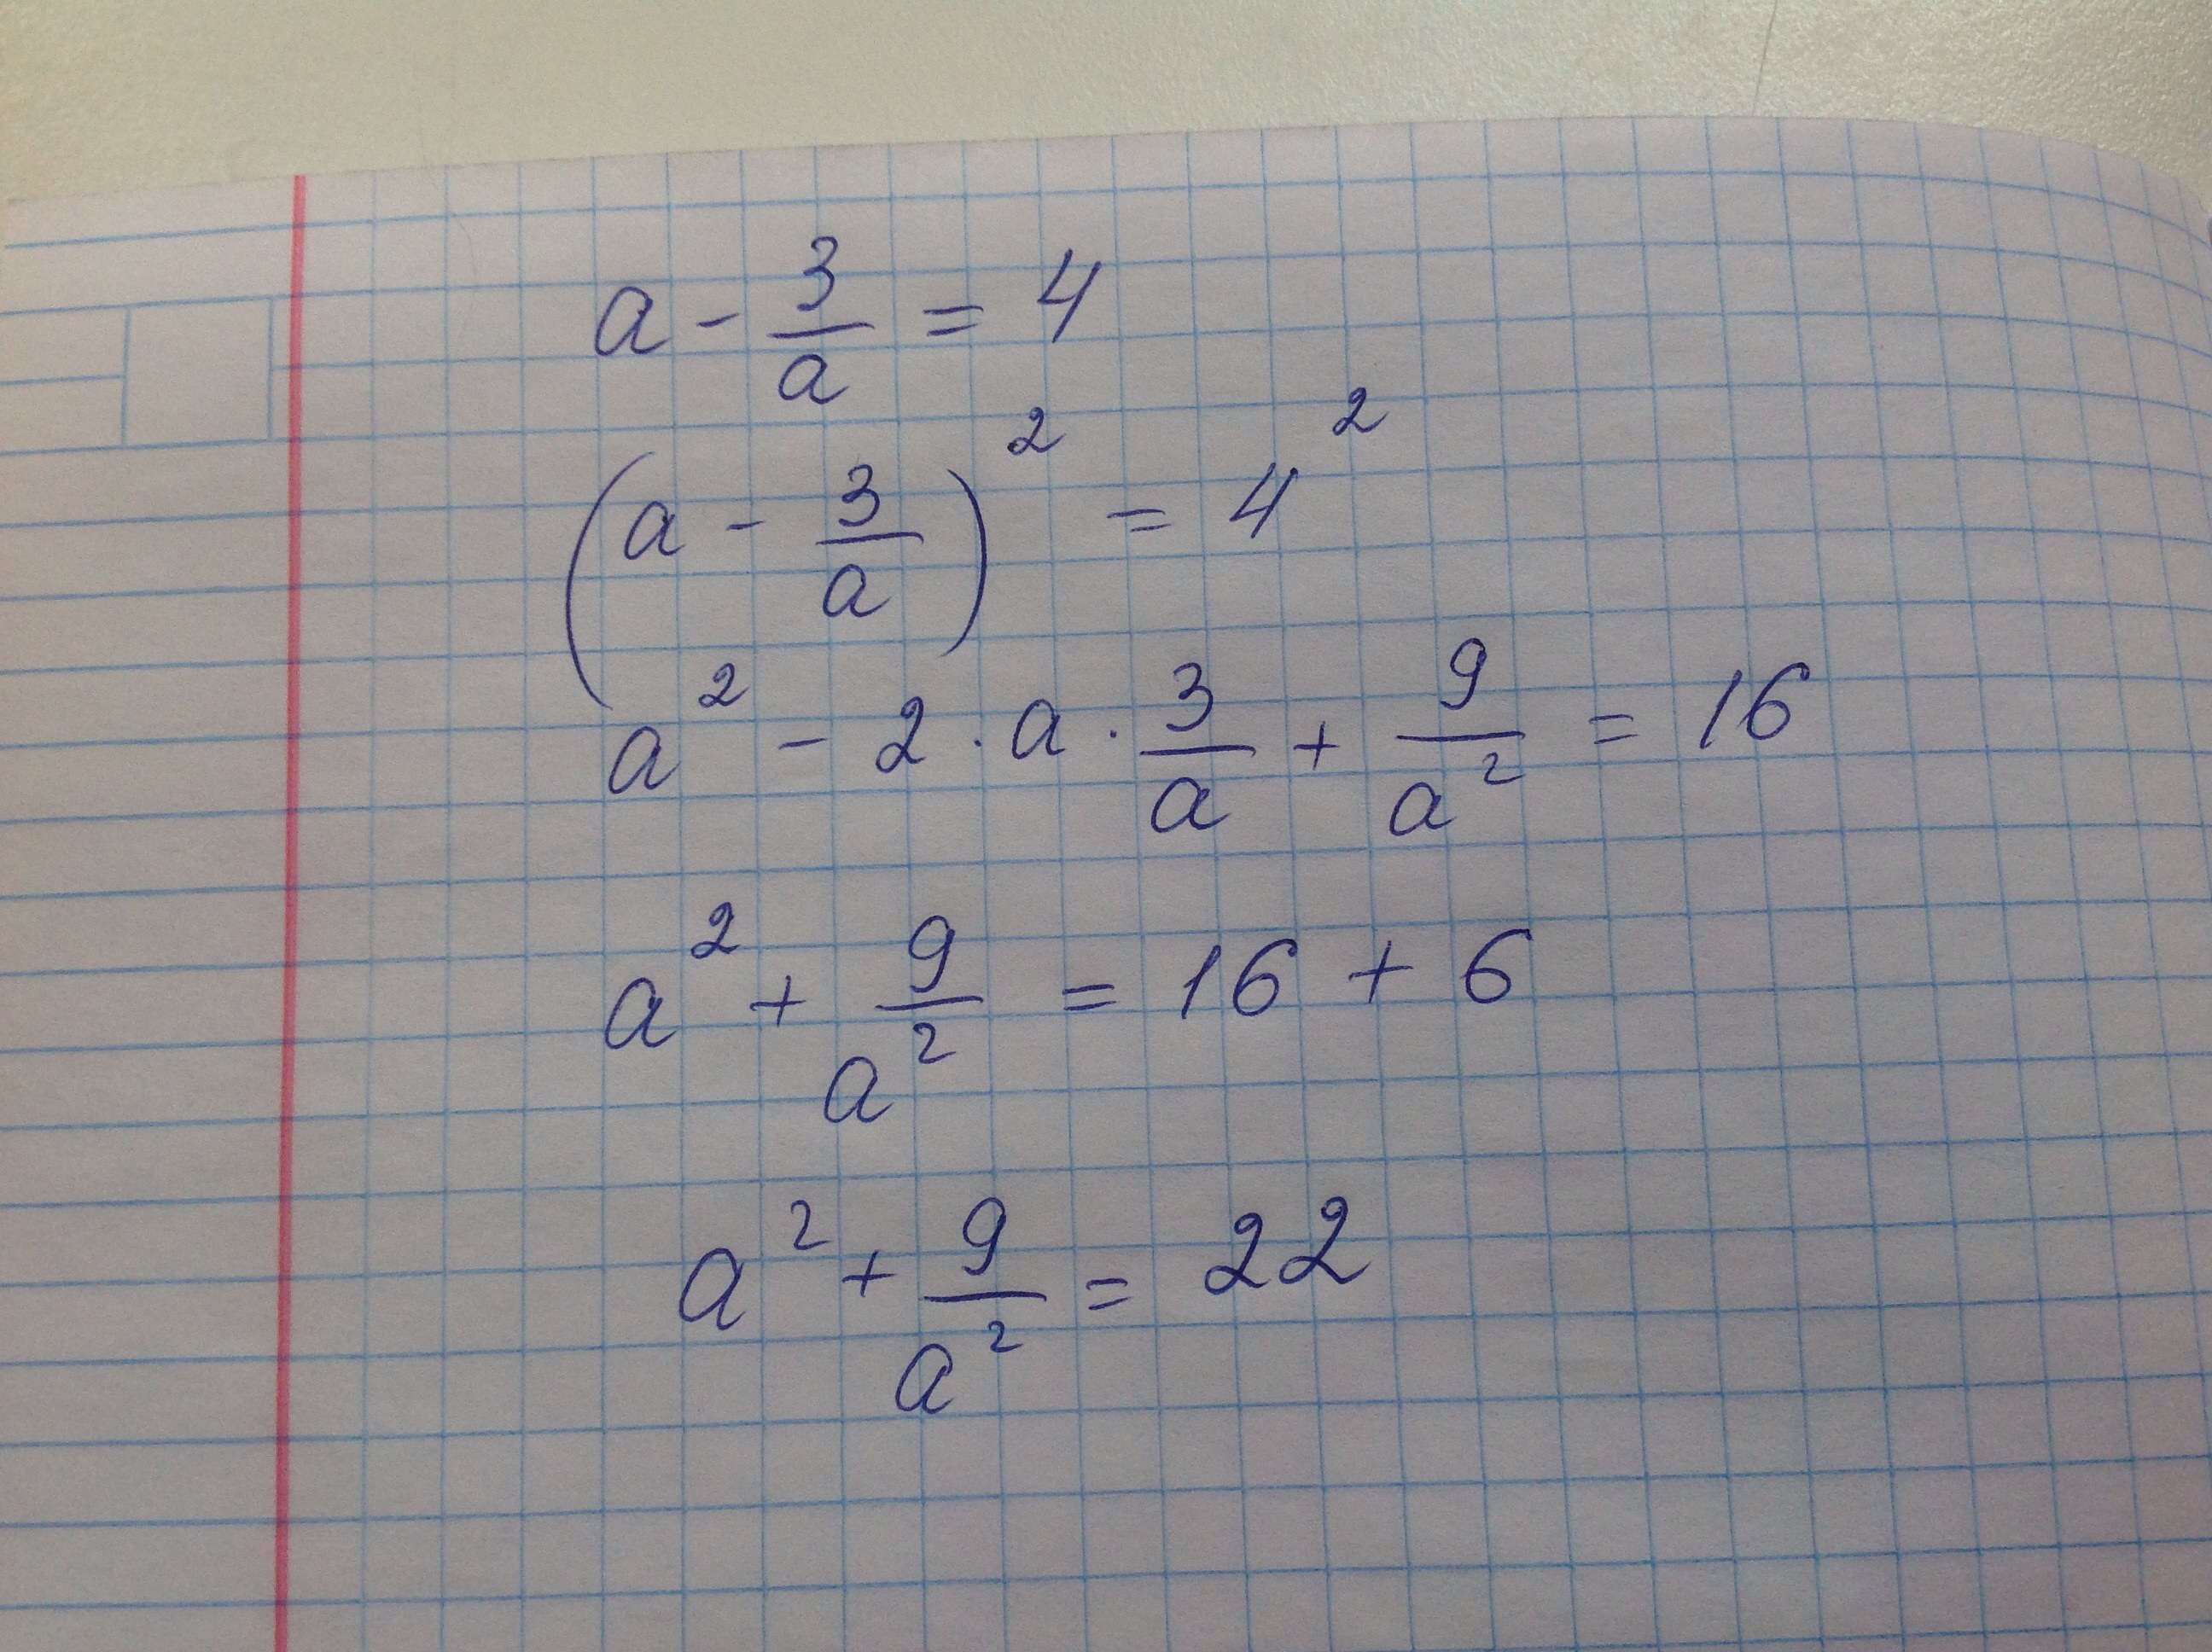 a - 3/a = 4
(a - 3/a)² = 4²
a² - 2 · a · 3/a + 9/a² = 16
a² + 9/a² = 16 + 6
a² + 9/a² = 22